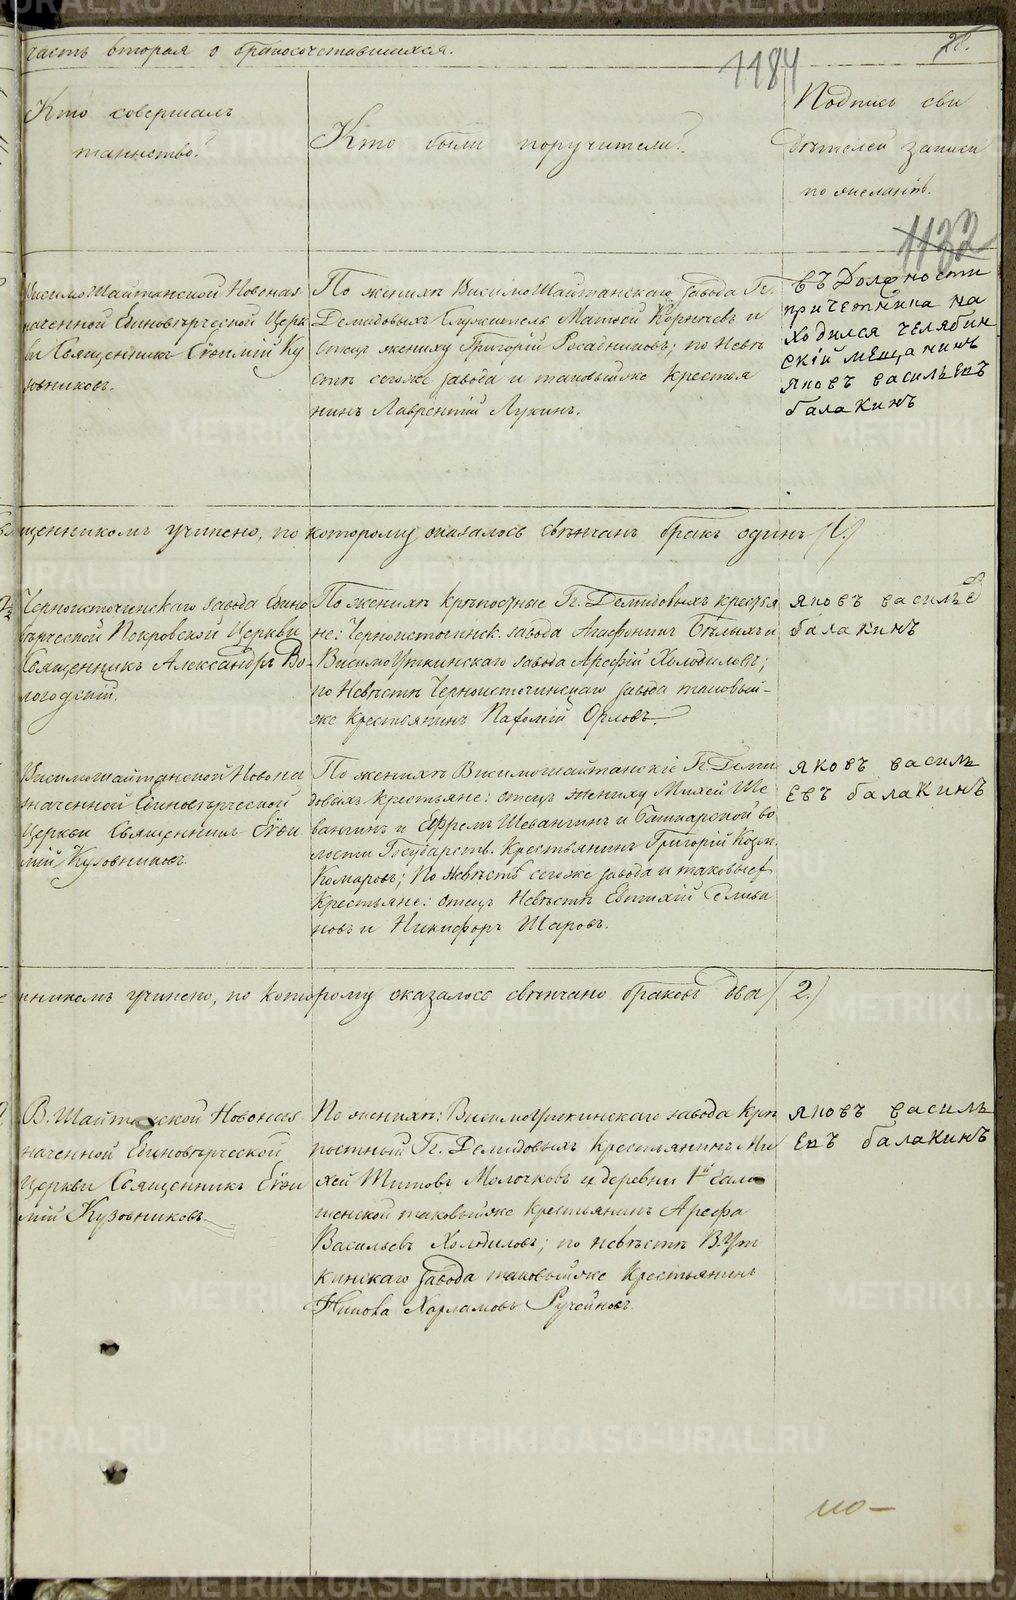 часть вторая о бракосочетавшихся.
1184
28.
Кто совершалъ
таинство?
Кто были поручители?
Подпись сви
дѣтелей записи
по желанію.
1132
ВисимоШайтанской Новоназ
наченной Единовѣрческой Церк
ви Священникъ Евѳимій Ку
зовниковъ.
По женихѣ ВисимоШайтанскаго завода Гг.
Демидовыхъ Служитель Матвей Корнечевъ и
отецъ жениху Григорій Росадниковъ; по Невѣ
стѣ сегоже завода и таковыйже Крестья
нинъ Лаврентій Лукинъ.
въ Должности
причетника на
ходился челябин
скій мещанинъ
яковъ васильевъ
балакинъ
щенникомъ учинено, по которому оказалось свѣнчанъ бракъ одинъ (1.)
Черноисточинскаго завода Едино
вѣрческой Покровской Церкви
Священникъ Александръ Во
логодскій.
По женихѣ Крѣпостные Гг. Демидовыхъ крестья
не: Черноисточинск. завода Агафонъ Бѣлыхъ и
ВисимоУткинскаго завода Арефій Холодиловъ;
по Невѣстѣ Черноисточинскаго завода таковый-
же Крестьянинъ Пафомій Орловъ.
яковъ васильев
балакинъ
Висимошайтанской Новона
значенной Единовѣрческой
Церкви Священникъ Евѳи
мій Кузовниковъ
По женихѣ Висимошайтанскіе Гг. Деми
довыхъ крестьяне: отецъ жениху Михей Ше
вангинъ и Ефремъ Шевангинъ и Башкарской во
лости Государств. Крестьянинъ Григорій Козм.
Комаровъ; По Невѣстѣ сегоже завода и таковые
Крестьяне: отецъ Невѣстѣ Евтихій Селива
новъ и Никифоръ Шаровъ.
яковъ василь
евъ балакинъ
нникомъ учинено, по которому оказалось свѣнчано браковъ два (2.)
В. Шайтанской Новоназ
наченной Единовѣрческой
Церкви Священникъ Евѳи
мій Кузовниковъ
По женихѣ: ВисимоУткинскаго завода Крѣ
постный Гг. Демидовыхъ Крестьянинъ Ми
хей Титовъ Молочковъ и деревни 1й Гало
шенской таковыйже Крестьянинъ Арефа
Васильевъ Холодиловъ; по невѣстѣ В. Ут
кинскаго завода таковыйже Крестьянинъ
Харламовъ Ручейновъ.
яковъ василь
евъ балакинъ
METRIKI.GASO-URAL.RU